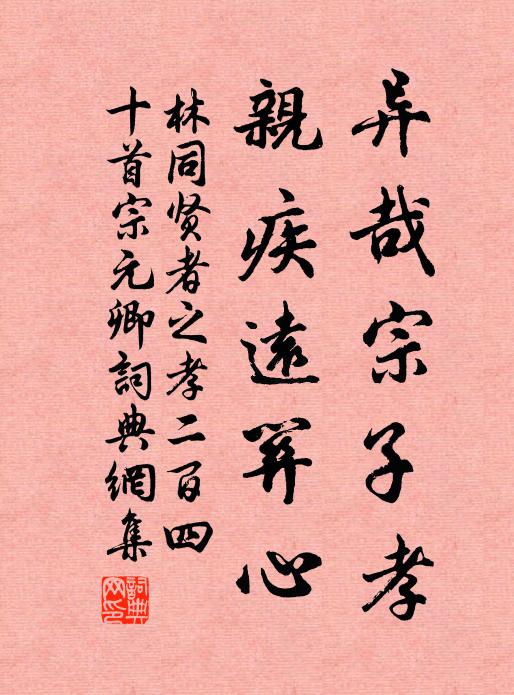 异哉宗子孝
親疾遠笄心
林同贤者之孝二百四
十首宗元卿詞典網集
詞典网印